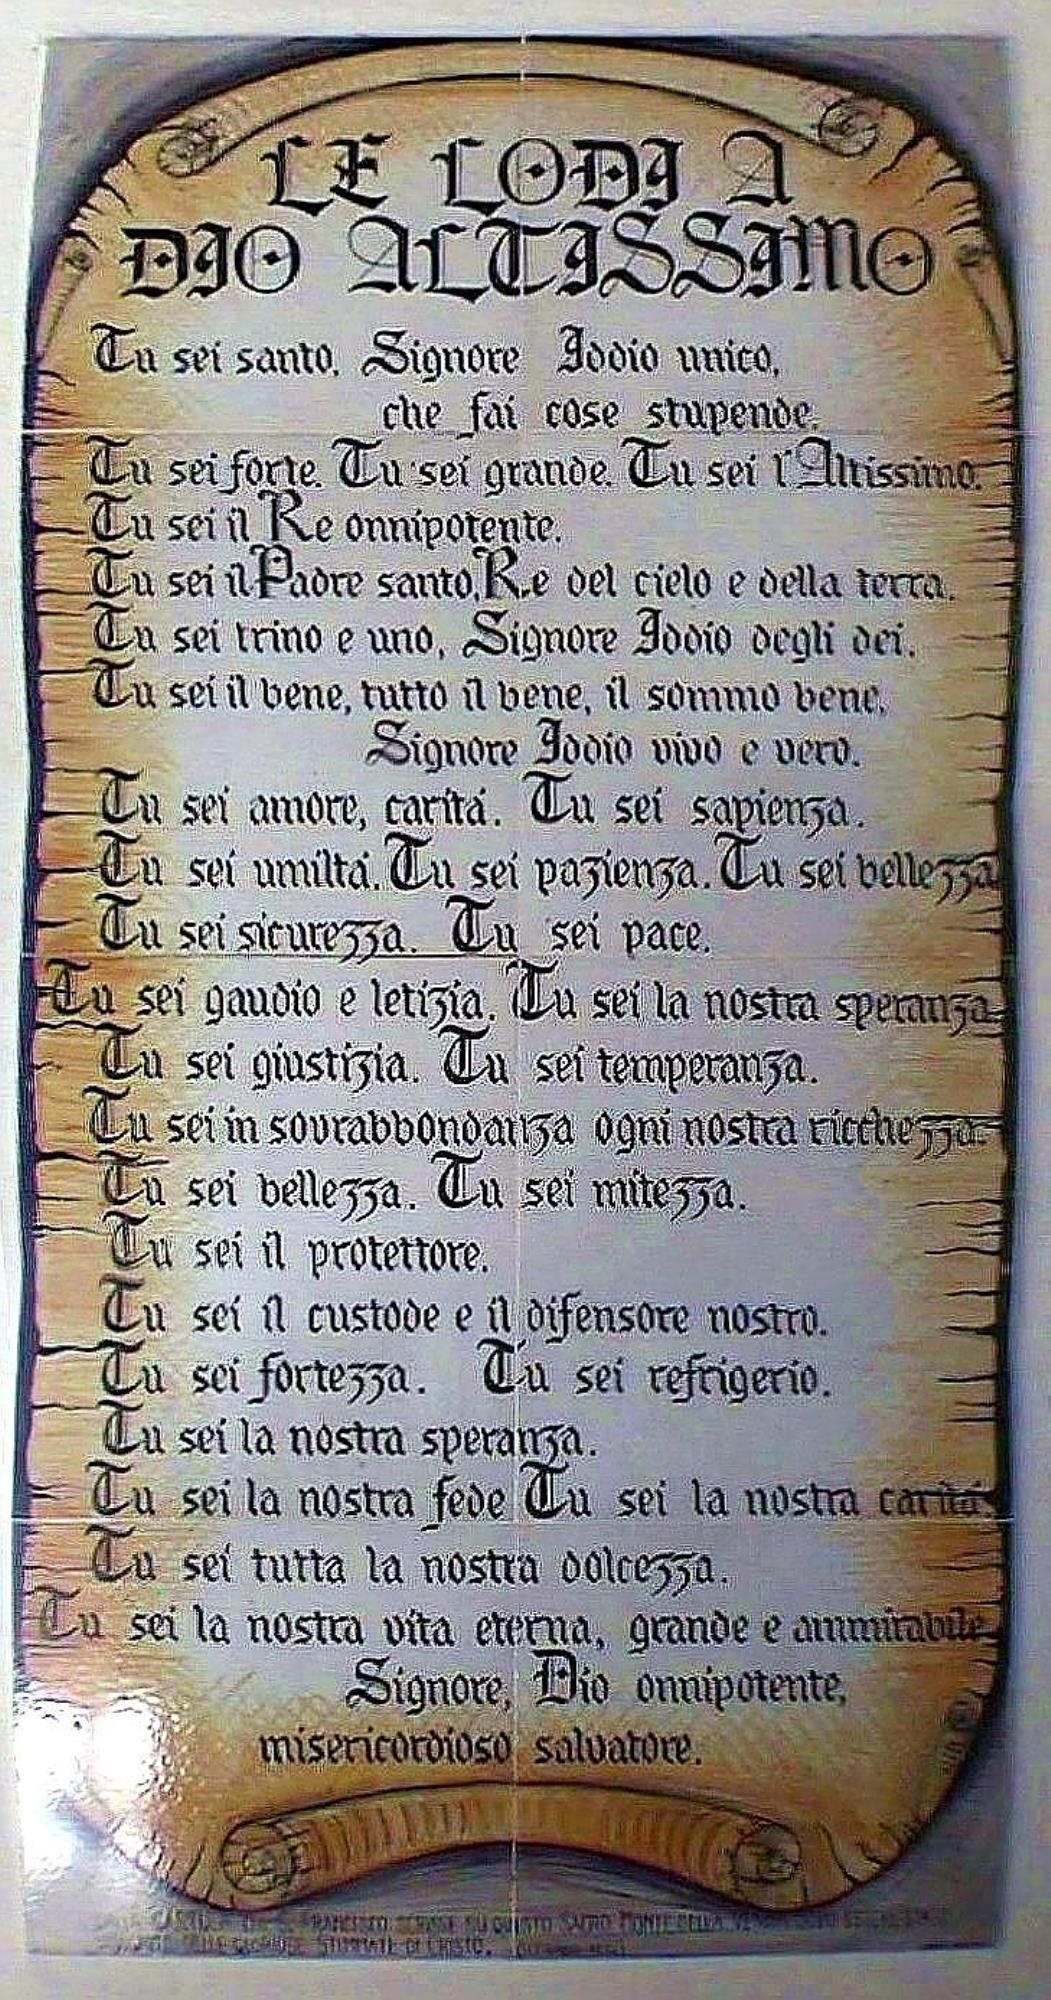 LE LODI A
DIO ALTISSIMO
Tu sei santo, Signore Iddio unico,
che fai cose stupende.
Tu sei forte. Tu sei grande. Tu sei l'Altissimo.
Tu sei il Re onnipotente.
Tu sei il Padre santo, Re del cielo e della terra.
Tu sei trino e uno, Signore Iddio degli dei.
Tu sei il bene, tutto il bene, il sommo bene,
Signore Iddio vivo e vero.
Tu sei amore, caritá. Tu sei sapienza.
Tu sei umiltá. Tu sei pazienza. Tu sei bellezza
Tu sei sicurezza. Tu sei pace.
Tu sei gaudio e letizia. Tu sei la nostra speranza.
Tu sei giustizia. Tu sei temperanza.
Tu sei in sovrabbondanza ogni nostra ricchezza.
Tu sei bellezza. Tu sei mitezza.
Tu sei il protettore.
Tu sei il custode e il difensore nostro.
Tu sei fortezza. Tu sei refrigerio.
Tu sei la nostra speranza.
Tu sei la nostra fede Tu sei la nostra caritá.
Tu sei tutta la nostra dolcezza.
Tu sei la nostra vita eterna, grande e ammirabile
Signore, Dio onnipotente,
misericordioso salvatore.
FRANCESCO SCRISSE SU QUESTO SACRO MONTE DELLA
STIMMATE DI CRISTO.